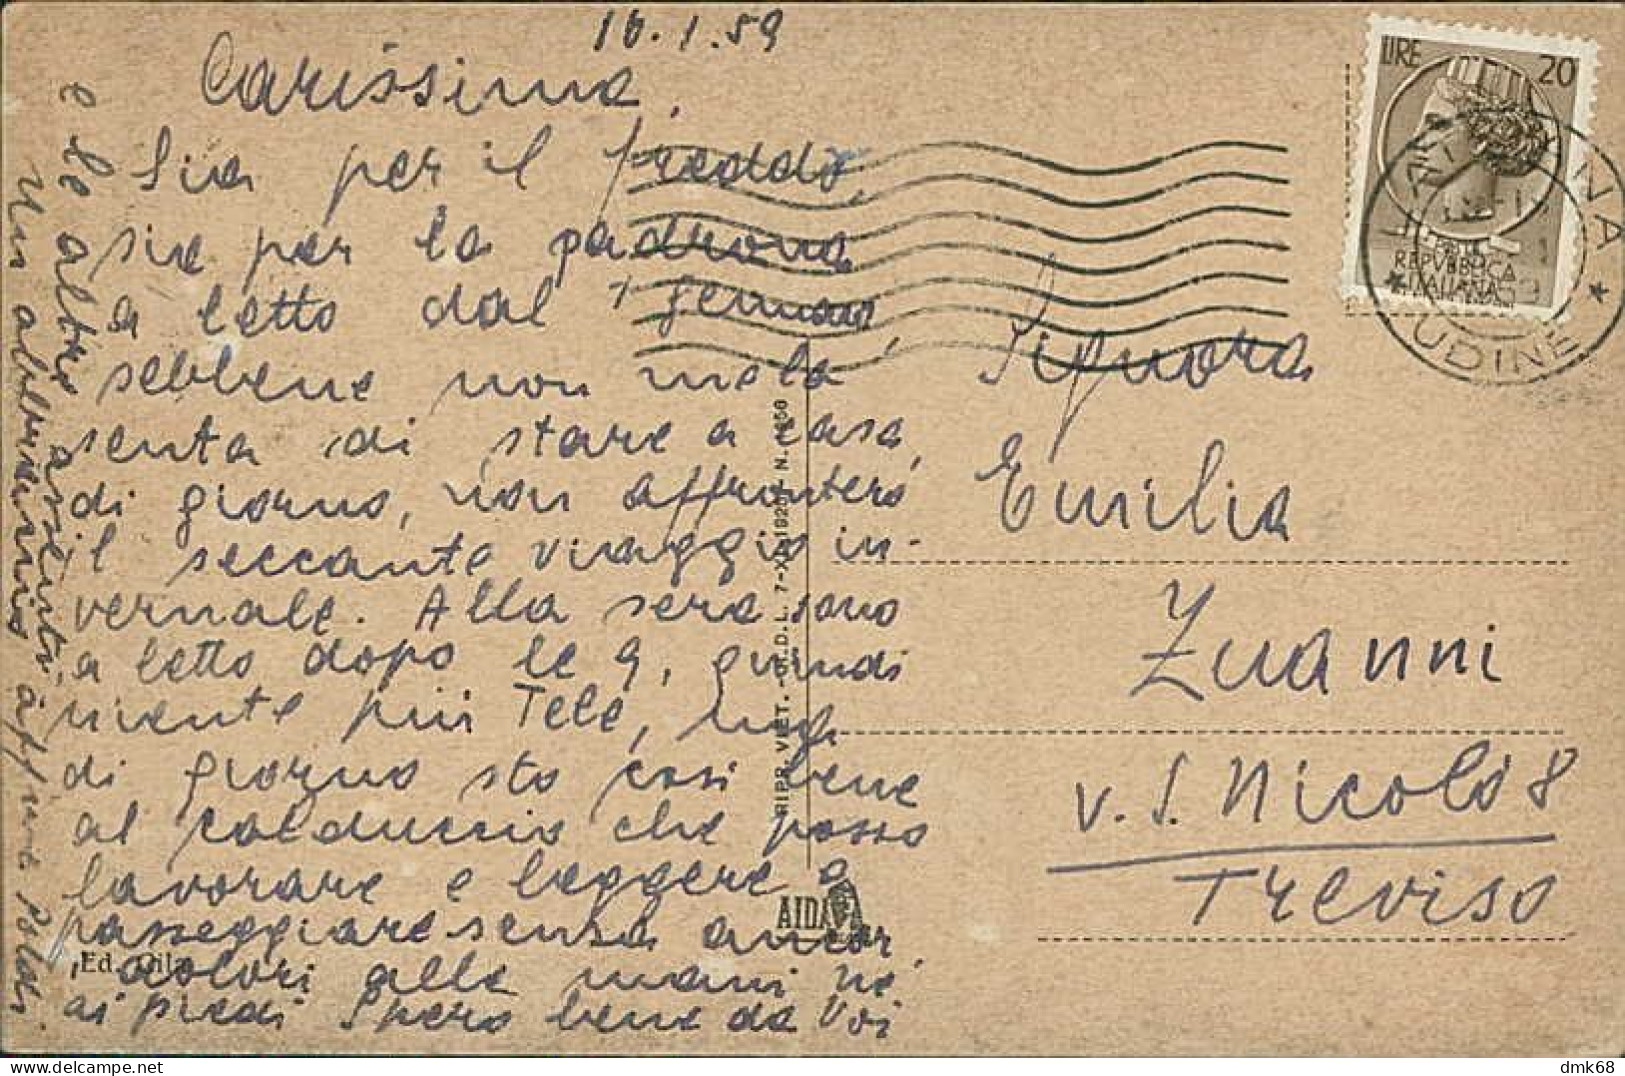 10.1.59
Carissima,
Sia per il freddo,
sia per la padrona
a letto dal 1° gennaio,
sebbene non me la
senta di stare a casa,
di giorno, non affronterò
il seccante viaggio in-
vernale. Alla sera sono
a letto dopo le 9, quindi
niente più Tele,
di giorno sto così bene
al calduccio che posso
lavorare e leggere e
passeggiare senza ancor
dolori alle mani nè
ai piedi Spero bene da Voi
e le altre assenti,
Un abbraccio
LIRE 20
REPVBBLICA
ITALIANA
UDINE
Signora
Emilia
Zuanni
v. S. Nicolò 8
Treviso
RIPR. VIET.
AIDA
Ed.